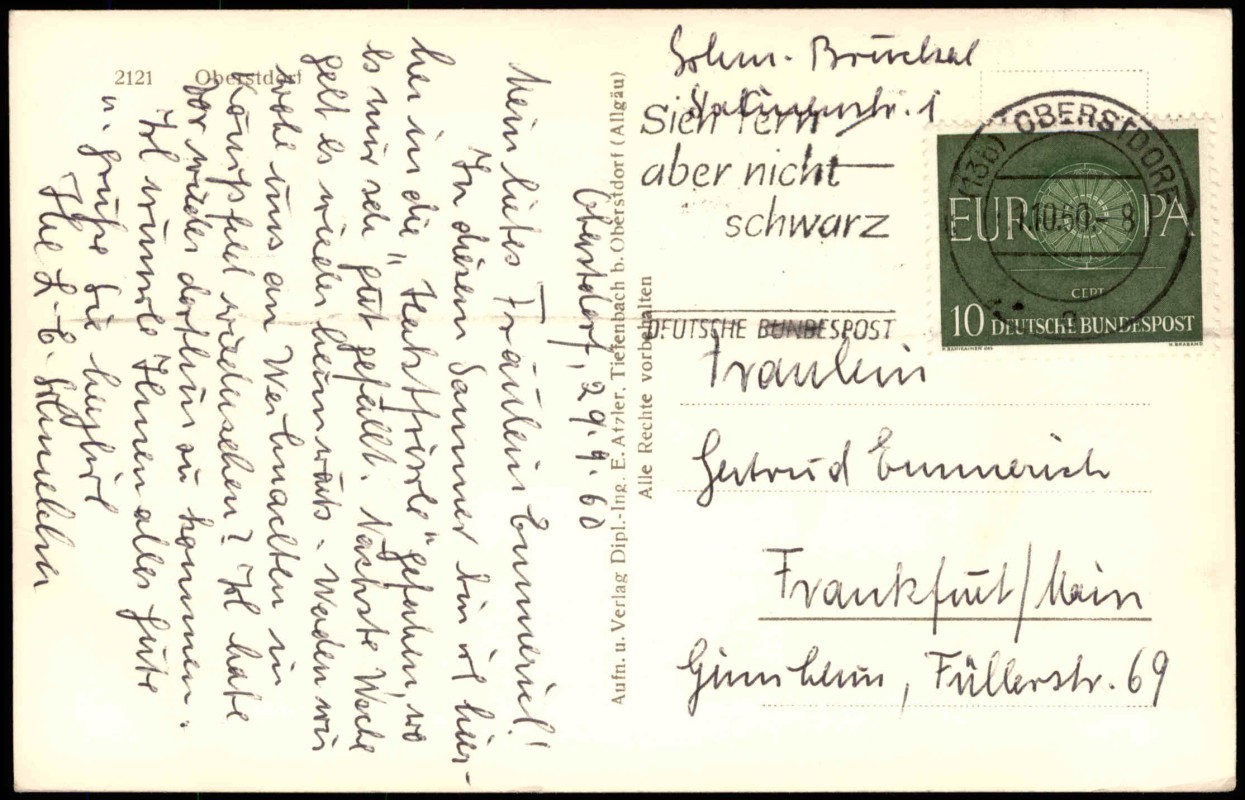 2121 Oberstdorf
Oberstdorf, 29.9.60
Mein liebes Fräulein Emmerich!
In diesem Sommer bin ich hier-
her in die " gefahren, wo
es mir sehr gut gefällt. Nächste Woche
geht es wieder heimwärts. Werden wir
wohl uns an Weihnachten in
wiedersehen? Ich habe
vor wieder dorthin zu kommen.
Ich wünsche Ihnen alles Gute
u. grüße Sie herzlich
Ihre
Aufn. u. Verlag Dipl.-Ing. E. Atzler, Tiefenbach b. Oberstdorf (Allgäu)
Alle Rechte vorbehalten
Bruchsal
str. 1
Sieh fern
aber nicht
schwarz
DEUTSCHE BUNDESPOST
(13b) OBERSTDORF
.10.60.- 8
EUROPA
CEPT
10 DEUTSCHE BUNDESPOST
Fräulein
Gertrud Emmerich
Frankfurt/Main
Ginnheim, Füllerstr. 69